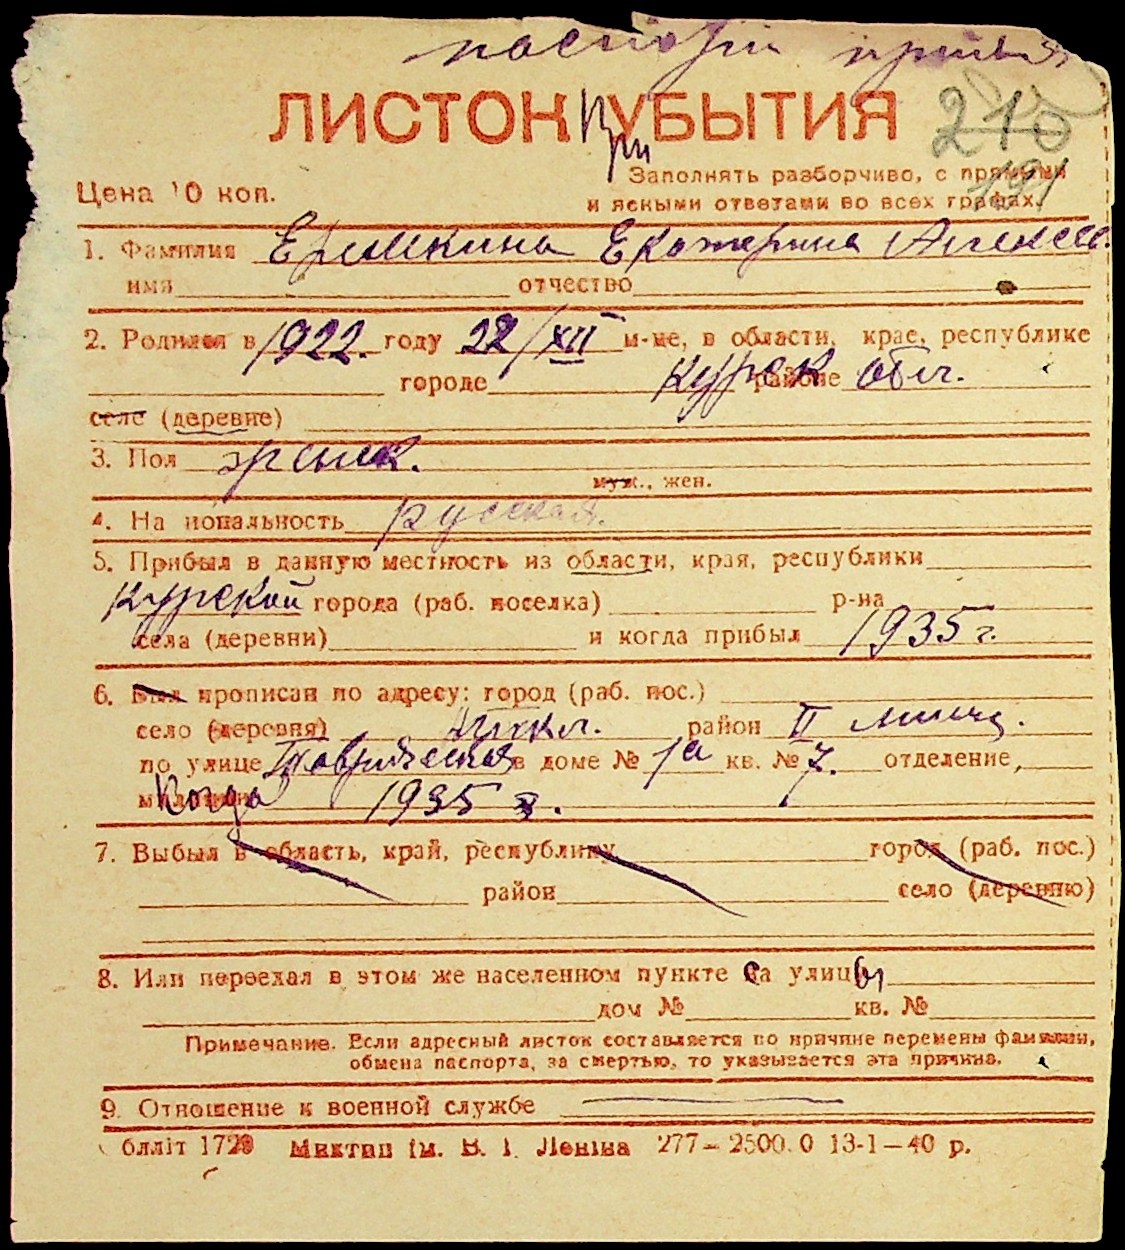 паспорт
ЛИСТОК УБЫТИЯ
При
210
191
Заполнять разборчиво, с прямыми
Цена 10 коп.
и ясными ответами во всех графах.
1. Фамилия Еремкина Екатерина Алексеев.
имя отчество
2. Родился в 1922. году 22/XII м-це, в области, крае, республике
городе Курск районе обл.
селе (деревне)
3. Пол женск.
муж., жен.
4. На иональность русская.
5. Прибыл в данную местность из области, края, республики
Курской города (раб. поселка) р-на
села (деревни) и когда прибыл 1935 г.
6. Был прописан по адресу: город (раб. пос.)
село (деревня) район II
по улице Таврическая в доме № 1а кв. № 7. отделение,
милиции Когда 1935 г.
7. Выбыл в область, край, республику город (раб. пос.)
район село (деревню)
8. Или переехал в этом же населенном пункте са улицы
дом № кв. №
Примечание. Если адресный листок составляется по причине перемены фамилии,
обмена паспорта, за смертью, то указывается эта причина.
9. Отношение к военной службе
бліт 1729 Миктип ім. В. І. Леніна 277–2500.0 13-1–40 р.